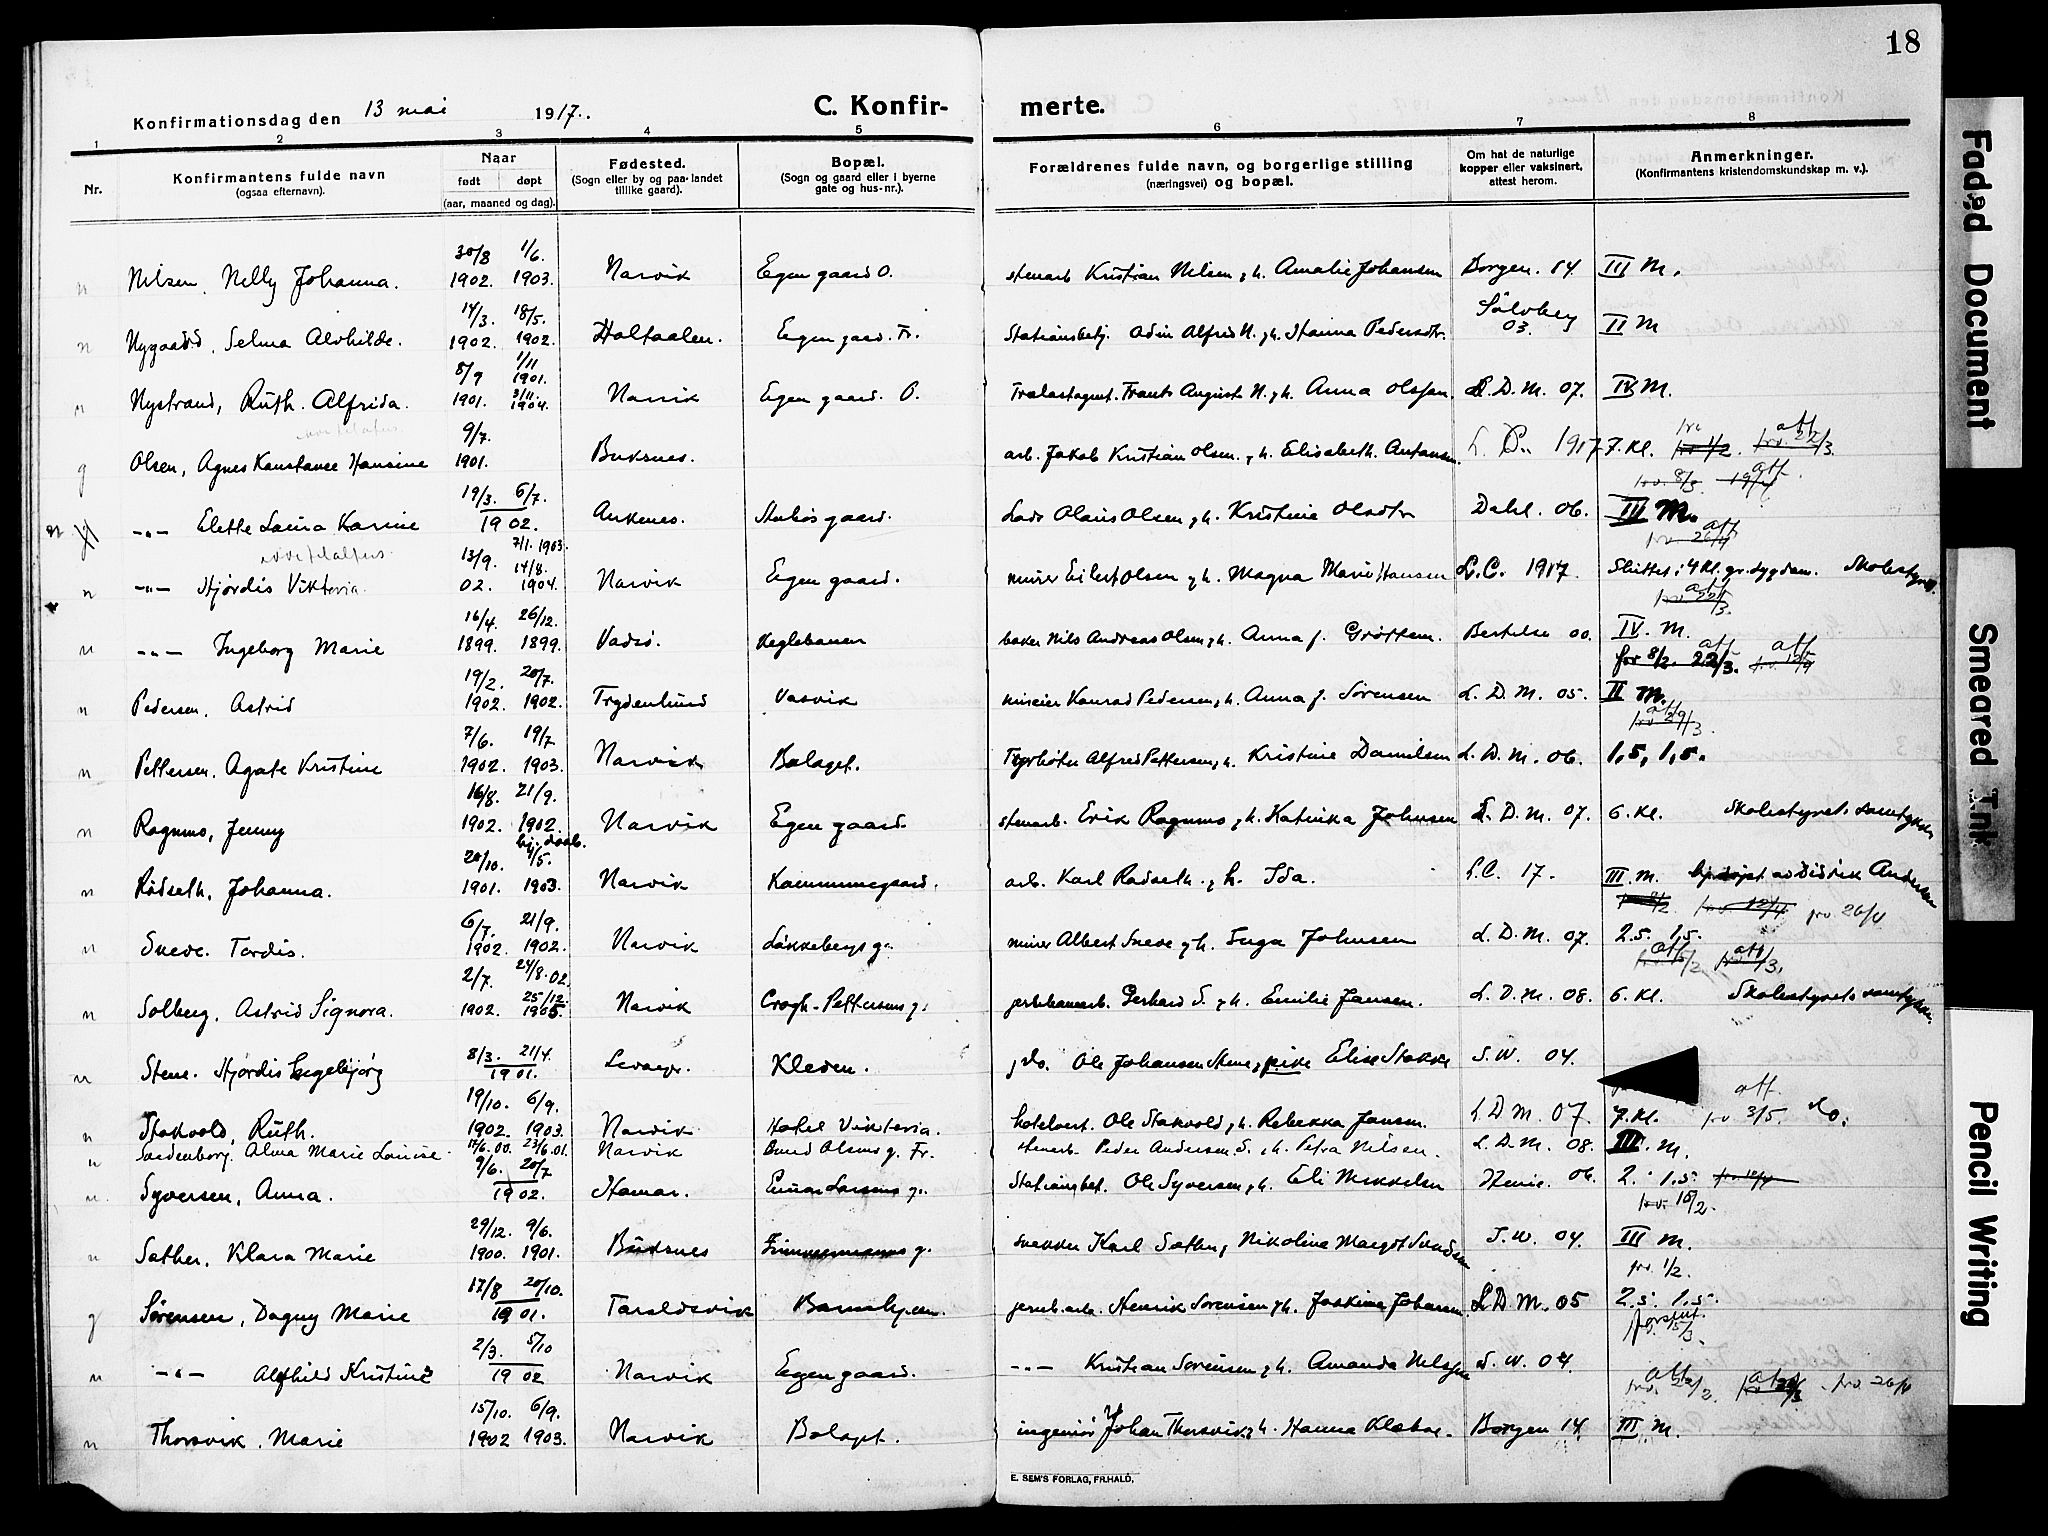 18
Konfirmationsdag den 13 mai 1917.
C. Konfir- merte.
1 2 3 4 5 6 7 8
Nr.
Konfirmantens fulde navn
(ogsaa efternavn).
Naar
født døpt
(aar, maaned og dag).
Fødested.
(Sogn eller by og paa landet
tillike gaard).
Bopæl.
(Sogn og gaard eller i byerne
gate og hus-nr.).
Forældrenes fulde navn, og borgerlige stilling
(næringsvei) og bopæl.
Om hat de naturlige
kopper eller vaksinert,
attest herom.
Anmerkninger.
(Konfirmantens kristendomskundskap m. v.).
30/8 1/6.
n Nilsen, Nelly Johanna. 1902. 1903. Narvik Egen gaard O. stenarb Kristian Nilsen, h. Amalie Johansen Borgen. 14 III M.
14/3. 18/5.
n Nygaard, Selma Alvhilde. 1902. 1902. Holtaalen. Egen gaard. Fr. Stationsbetj. Odin Alfred N. h. Hanna Pedersdtr. Sølvberg 03. II M
8/9 1/11 1901.
n Nystrand, Ruth. Alfrida. 1901. 3/11. 1904. Narvik Egen gaard. O. Trælastagent. Frants August N. h. Anna Olssen. L. D. M. 07. IV M.
9/7.
g Olsen, Agnes Konstanse Hansine 1901. Buksnes. arb. Jakob Kristian Olsen. h. Elisabeth. Antonsen. L. C. 1917 7. Kl.
19/3. 6/7.
n -"- Elette Laura Karine 1902. Ankenes. gaard. Olaus Olsen h. Kristine Olsdtr Dahl. 06. III M.
13/9. 7/1. 1903. 14/8.
n -"- Hjørdis Viktoria. 02. 1904. Narvik Egen gaard. murer Eilert Olsen h. Magna Marie Hansen L. C. 1917. Sluttet i 4 Kl. gr. sygdom. Skolestyret.
16/4. 26/12.
n -"- Ingeborg Marie 1899. 1899. Vadsø. Keglebanen baker Nils Andreas Olsen h. Anna f. Grøttem. Bertelse 00. IV. M.
for 8/2. 22/3.
19/2. 20/7.
n Pedersen. Astrid 1902. 1902. Trydenlund Vasvik Konrad Pedersen, h. Anna f. Sørensen L. D. M. 05. II M.
7/6. 19/7
n Pettersen. Agate Kristine 1902. 1903. Narvik Bolaget. Fyrbøter Alfred Pettersen, h. Kristine Danielsen L. D. M. 06. 1,5, 1,5.
16/8. 21/9.
n Rognmo, Jenny 1902. 1902. Narvik Egen gaard. stenarb. Erik Rognmo h. Katinka Johnsen L. D. M. 07. 6. Kl. Skolestyrets samtykke
20/10. hj. daab. 4/5.
n Rødseth, Johanna. 1901. 1903. Narvik Kommunegaard. arb. Karl Rødseth. h. Ida. L.C. 17. III. M. hj. døpt av Didrik Andersen
prv. 26/4
6/7. 21/9.
n Sneve. Tordis. 1902. 1902. Narvik Løkkebergs g. murer Albert Sneve h. Inga Johnsen L. D. M. 07. 2.5. 1,5.
2/7. 24/8. 02. 25/12.
n Solberg, Astrid Signora. 1902. 1905. Narvik Crogh-Pettersens g. jernbanearb. Gerhard S. h. Emilie Jansen. L. D. M. 08. 6. Kl. Skolestyrets samtykke.
8/3. 21/4.
n Stene. Hjørdis Ingebjørg 1901. Levanger. Kleven. do. Ole Johansen Stene, pike Elise Stokke S. W. 04.
19/10. 6/9.
n Stokvold, Ruth. 1902. 1903. Narvik Hotel Viktoria. hotelvert. Ole Stokvold h. Rebekka Jansen. L. D. M. 07 7. Kl. prv. 3/5. do.
n Alma Marie Louise. 17/6. 00. 23/6. 01. Narvik Olsens g. Fr. stenarb. Peder Andersen S. h. Petra Nilsen. L. D. M. 08. III. M.
9/6. 20/7
n. Syversen, Anna. 1902. Hamar. Einar Larsens g. Stationsbet. Ole Syversen h. Eli Mikkelsen 06. 2. 1.5
29/12. 9/6.
n Sæther, Klara Marie 1900. 1901. Buksnes Zimmermanns g. snekker Karl Sæther, Nikoline Margot S. W. 04. III M.
prv. 1/2.
17/8 20/10.
g Sørensen, Dagny Marie 1901. Taraldsvik jernb. arb. Henrik Sørensen h. Joakima Johansen. L. D. M. 05 2.5 1.5.
2/3. 5/10
n -"- Alfhild Kristine 1902 Narvik Egen gaard. -"- Kristian Sørensen h. Amanda Nelssen S. W. 04.
15/10. 6/9.
n Thorsvik, Marie 1902 1903. Narvik Bolaget. ingeniør Johan Thorsvik h. Hanna Klæboe. Borgen 14. III M.
E. SEM'S FORLAG, FR.HALD,
Faded Document
Smeared Ink
Pencil Writing